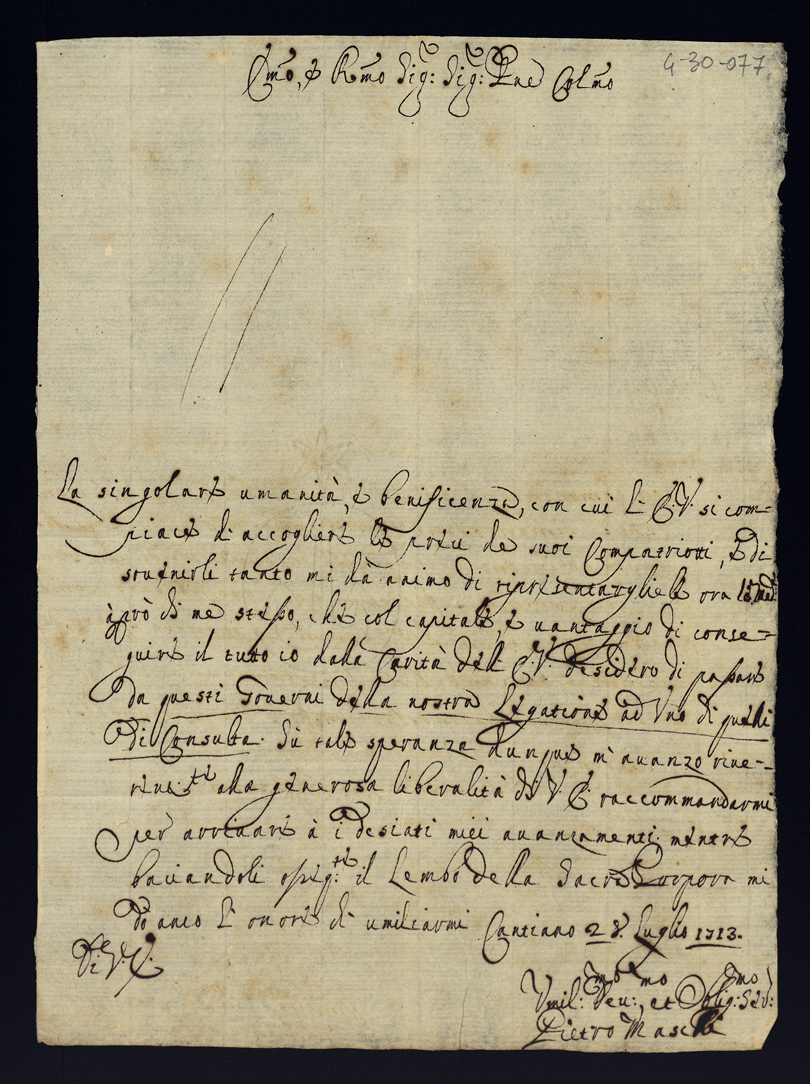 Emo, e Rmo Sig: Sig: Pne Colmo
4-30-077
La singolare umanità, e beneficenza, con cui L'E.V. si com-
piace di accogliere le preci de suoi Compatriotti, e di
souenirli tanto mi dà animo di ripresentargliele ora
però di me stesso, che col capitale, e uantaggio di conse-
guire il tutto io dalla Carità dell'E.V. desidero di passare
da questi Gouerni della nostra Legatione ad Vno di quelli
di Consulta. Sù tale speranza dunque m'auanzo riue-
rente alla generosa liberalità di V.E. raccommandarmi
per arriuare à i desiati miei auanzamenti mentre
baciandoli il Lembo della Sacra Porpora mi
dò anco l'onore di umiliarmi Cantiano 28. Luglio 1713.
Di V.E.
Vmil:mo Deu:mo, et Oblig:mo Ser:
Pietro Mascelli